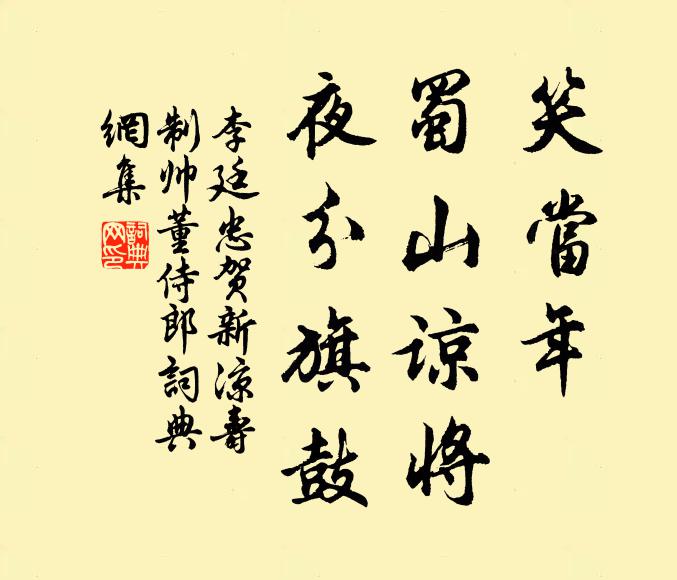 笑當年
蜀山諒將
夜分旗鼓
李廷忠賀新涼壽
制帅董侍郎詞典
網集
詞典
网印